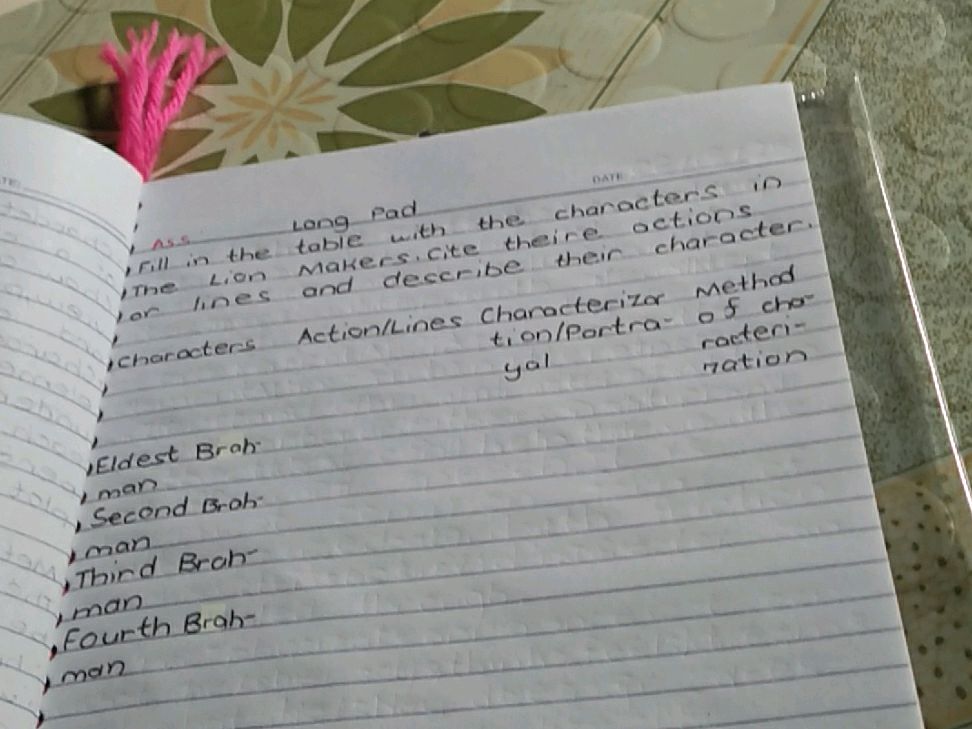 DATE
Ass Long Pad
Fill in the table with the characters in
The Lion Makers. Cite theire actions
or lines and describe their character.
Characters Action/Lines Characteriza Method
tion/Portra- of cha-
yal racteri-
zation
Eldest Brah-
man
Second Brah-
man
Third Brah-
man
Fourth Brah-
man